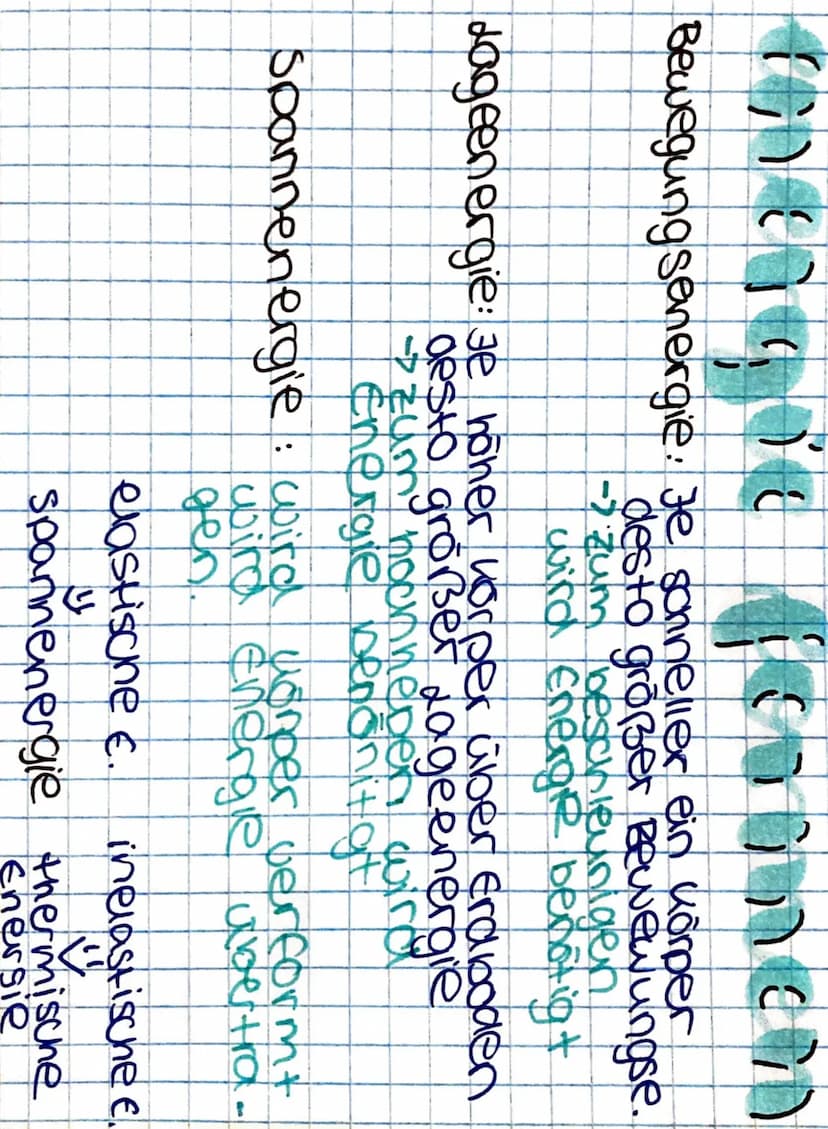 Energie formen
Bewegungsenergie: Je schneller ein Körper
desto größer Bewewungse.
→ zum beschleunigen
wird Energie benötigt
Lageenergie: Je höher Körper über Erdboden
desto größer Lageenergie
→ zum hochheben wird
Energie benönitgt
Spannenergie: wird Körper verformt
wird Energie übertra-
gen.
elastische E. inelastische E.
⇓ ⇓
Spannenergie thermische
Energie